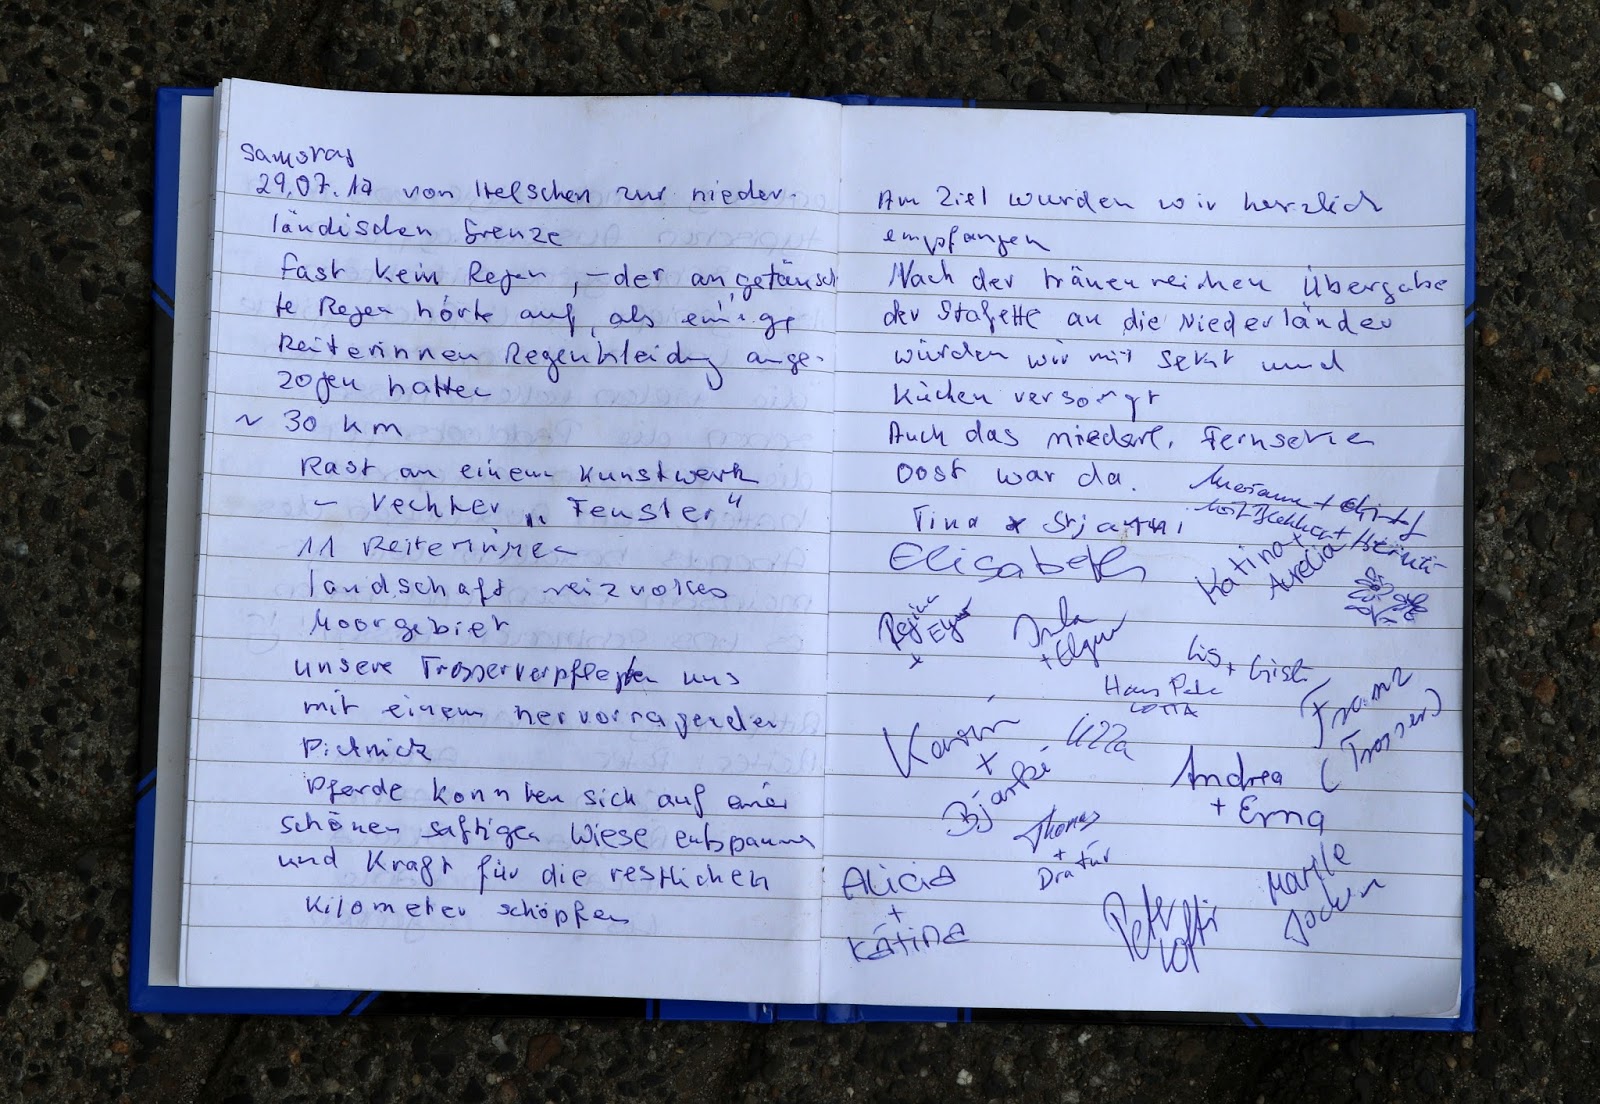 Samstag
29.07.17 von Itelschen zur nieder-
ländischen Grenze
Fast kein Regen, - der "angetäusch
te Regen hörte auf, als einige
Reiterinnen Regenkleidung ange-
zogen hatten
~ 30 km
Rast an einem Kunstwerk
- Vechter „Fenster“
11 Reiterinnen
landschaft reizvolles
Moorgebiet
unsere Trosser verpflegten uns
mit einem hervorragenden
Picknick
Pferde konnten sich auf einer
schönen saftigen Wiese entspannen
und Kraft für die restlichen
Kilometer schöpfen
Am Ziel wurden wir herzlich
empfangen
Nach der tränenreichen Übergabe
der Stafette an die Niederländer
würden wir mit Sekt und
Kuchen versorgt
Auch das niederl. Fernsehen
Oost war da.
Tina + Stjarni
Elisabeth
Katina +
Aurelia
+ Elgur
Lis + Gisli
Hans Peter
LOTTA
Franz
(Trosser)
Karin
+
Bjarki
Ulla
Andrea
+ Erna
Thomas
+
Dratür
Alicia
+
Kátina
Peter
Lofti